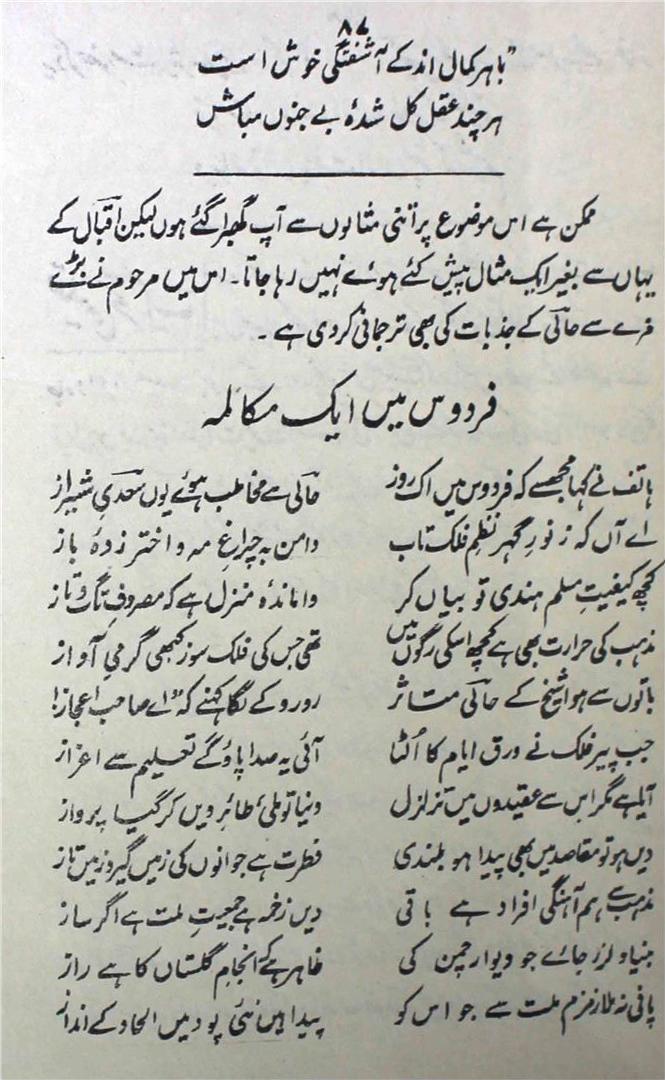 ۸۷
"باہر کمال اندکے آشفتگی خوش است
ہر چند عقل کل شدۂ بے جنوں مباش
ممکن ہے اس موضوع پر اتنی مثالوں سے آپ گھبرا گئے ہوں لیکن اقبال کے
یہاں سے بغیر ایک مثال پیش کئے ہوئے نہیں رہا جاتا۔ اس میں مرحوم نے بڑے
مزے سے حالی کے جذبات کی بھی ترجمانی کر دی ہے۔
فردوس میں ایک مکالمہ
ہاتف نے کہا مجھ سے کہ فردوس میں اک روز حالی سے مخاطب ہوئے یوں سعدیِ شیراز
اے آں کہ ز نورِ گہر نظمِ فلک تاب دامن بہ چراغِ مہ و اختر زدۂ باز
کچھ کیفیتِ مسلم ہندی تو بیاں کر واماندۂ منزل ہے کہ مصروفِ تگ و تاز
مذہب کی حرارت بھی ہے کچھ اسکی رگوں میں تھی جس کی فلک سوز کبھی گرمیِ آواز
باتوں سے ہوا شیخ کے حالی متاثر رو رو کے لگا کہنے کہ "اے صاحب اعجاز!
جب پیر فلک نے ورق ایام کا اُلٹا آئی یہ صدا پاؤگے تعلیم سے اعزاز
آیا ہے مگر اس سے عقیدوں میں تزلزل دنیا تو ملی طائرِ دیں کر گیا پرواز
دیں ہو تو مقاصد میں بھی پیدا ہو بلندی فطرت ہے جوانوں کی زمیں گیر و زمیں تاز
مذہب سے ہم آہنگی افراد ہے باقی دیں زخمہ ہے جمعیتِ ملت ہے اگر ساز
بنیاد لرز جائے جو دیوار چمن کی ظاہر ہے کہ انجام گلستاں کا ہے راز
پانی نہ ملا زمزم ملت سے جو اس کو پیدا ہیں نئی پود میں الحاد کے انداز